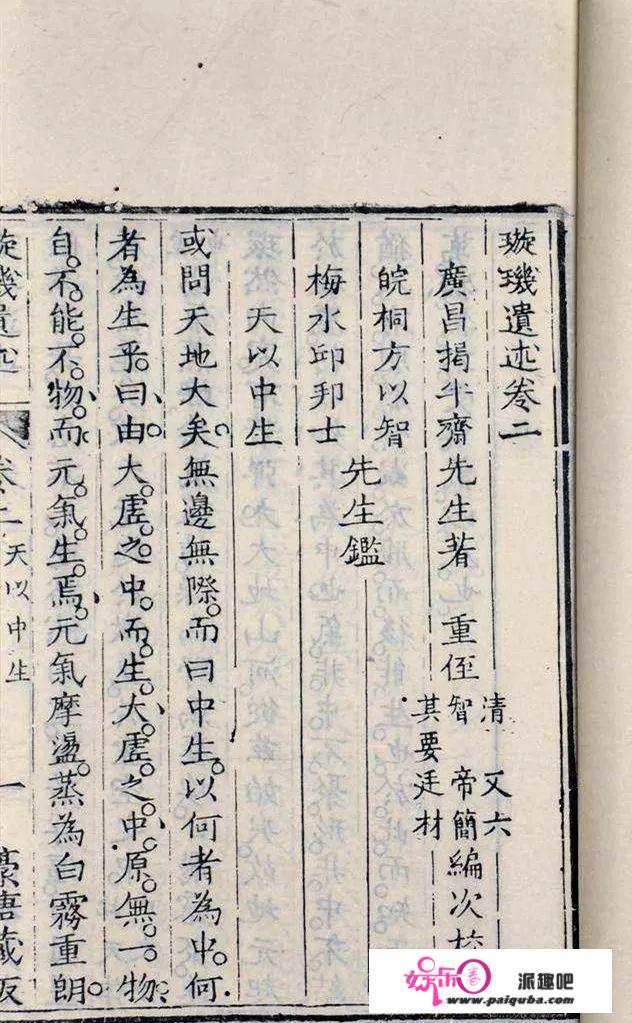 璇璣遺述卷二
廣昌揭半齋先生著 重侄
清 又六
智 帝簡
其要 廷材
編次校
皖桐方以智
梅水邱邦士
先生鑑
天以中生
或問天地大矣無邊無際而曰中生以何者為中何
者為生乎曰由大虛之中而生大虛之中原無一物
自不能不物而元氣生焉元氣摩盪蒸為白霧重朗
璇璣遺述 卷二 天以中生 一
藏板
派趣吧
www.paiquba.com